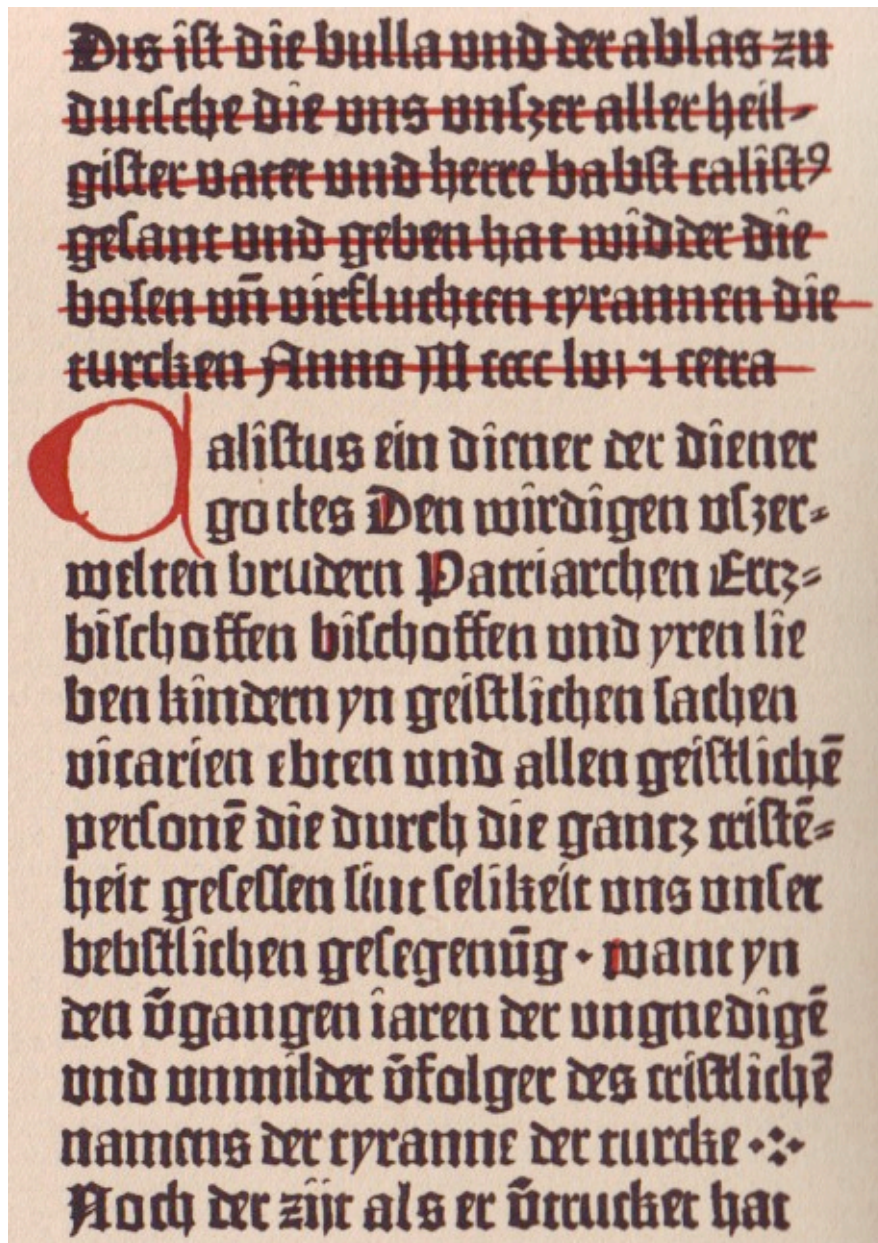 Dis ist die bulla und der ablas zu
dutsche die uns unszer aller heil-
gister vater und herre babst calistꝰ
gesant und geben hat widder die
bosen un̄ virfluchten tyrannen die
turcken Anno M cccc lvi ⁊ cetra
Calistus ein diener der diener
gottes Den wirdigen uszer-
welten brudern Patriarchen Ertz-
bischoffen bischoffen und yren lie
ben kindern yn geistlichen sachen
vicarien ebten und allen geistlichē
personē die durch die gantz cristē-
heit gesessen sint selikeit uns unser
bebstlichen gesegenūg · want yn
den v̄gangen iaren der ungnedigē
und unmilder v̄folger des cristlichē
namens der tyranne der turcke
Noch der zijt als er v̄trucket hat